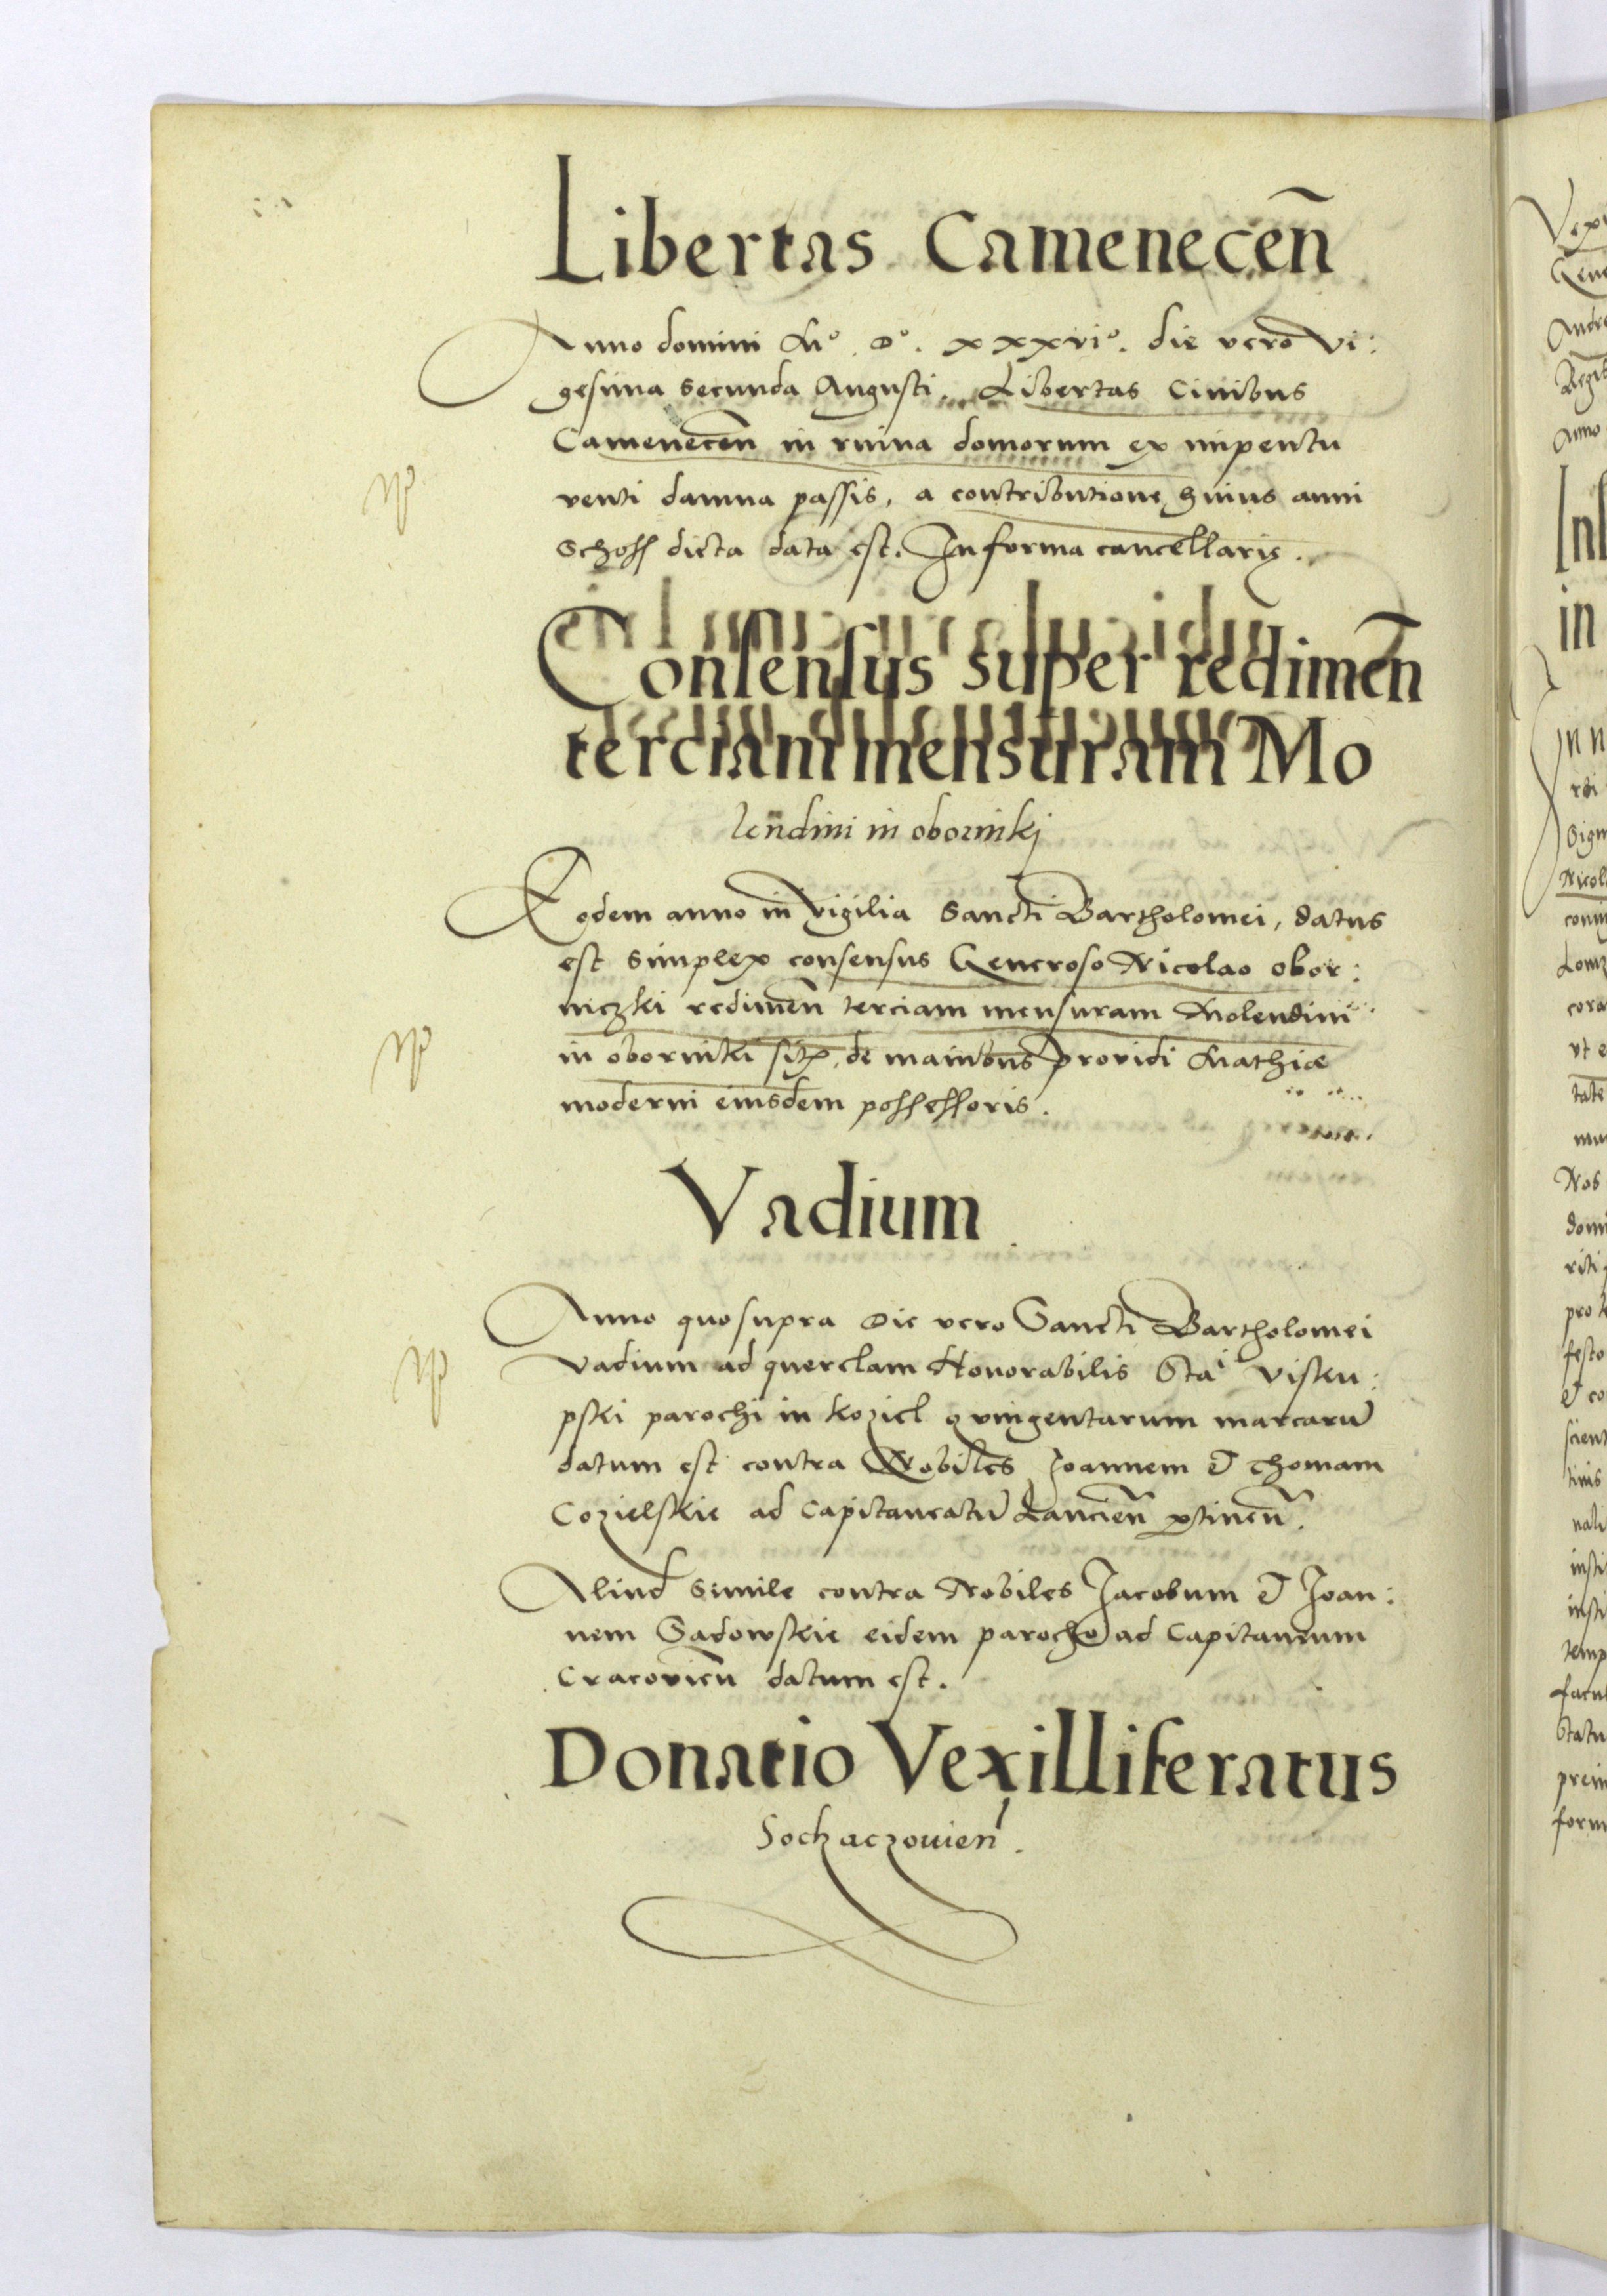 Libertas Camenecen̄
Anno domini Mº. Dº. xxxviº. die vero Vi:
gesima secunda Augusti. Libertas Ciuibus
Camenecen̄ in ruina domorum ex impentu
venti damna passis, a contributione huius anni
Schoss dicta data est. In forma cancellarię.
Consensus super redimen̄
terciam mensuram Mo
lendini in obornikj
Eodem anno in vigilia Sancti Bartholomei, datus
est simplex consensus Generoso Nicolao obor:
niczki redimen̄ terciam mensuram Molendini
in oborniki de manibus prouidi Mathiæ
moderni eiusdem possessoris.
Vadium
Anno quo supra Die vero Sancti Bartholomei
vadium ad querelam Honorabilis Stai Visku:
pski parochi in koziel qvingentarum marcarū
datum est contra Nobiles Joannem et Thomam
Cozielskie ad Capitaneatū Lancien̄ ꝑtinen̄.
Aliud simile contra Nobiles Jacobum et Joan:
nem Sadowskie eidem parocho ad Capitaneum
Cracovien̄ datum est.
Donatio Vexilliferatus
Sochaczouien̄.